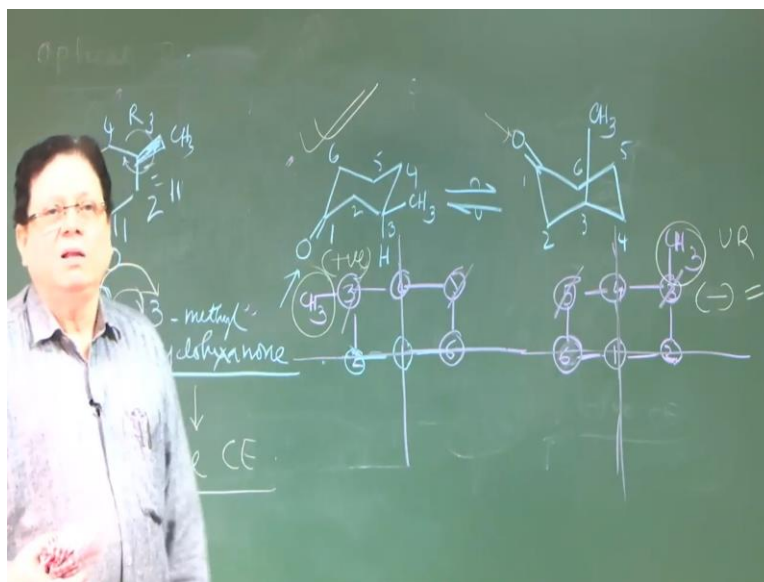 4 R 3 CH3
2 H
11
3-methyl
clohexanone
CE
6 5 4
CH3
1 2 3
O H
(+ve)
CH3 3 4
2 1 6
CH3
O 6 5
1 3
2 4
CH3 UR
5 4 3 (-) =
6 1 2